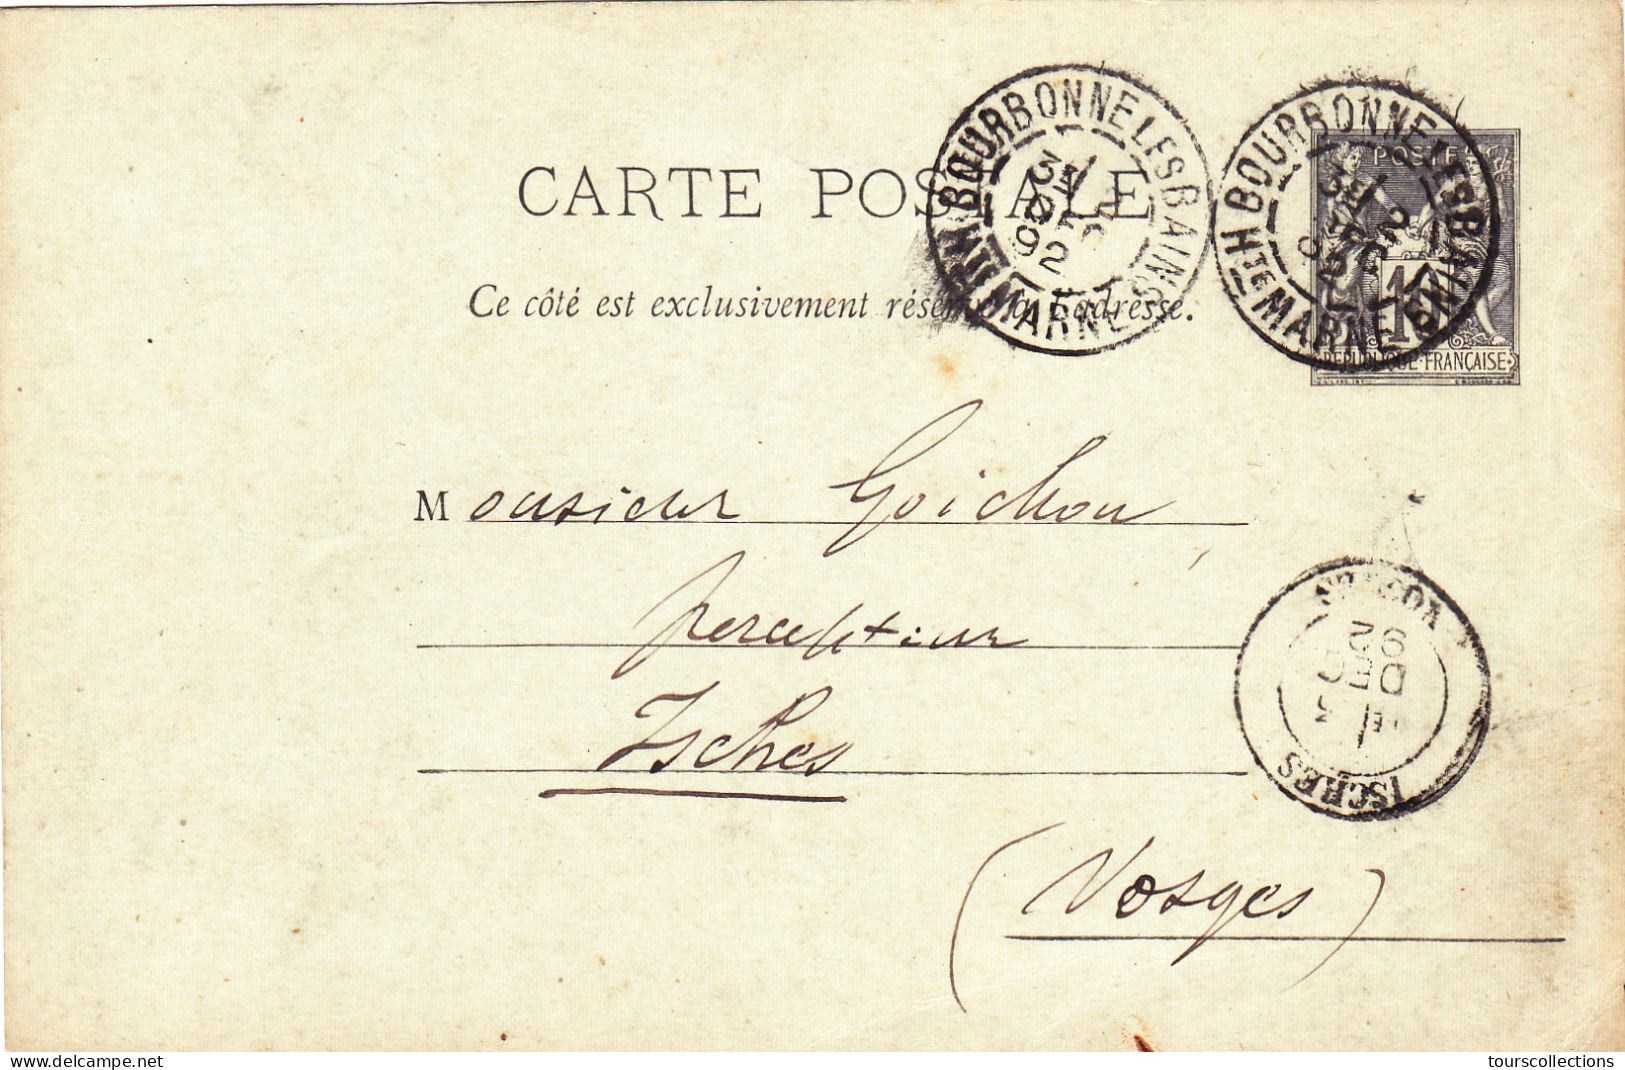 CARTE POSTALE
Ce côté est exclusivement réservé à l'adresse.
BOURBONNE LES BAINS
Hte MARNE
3E
92
BOURBONNE LES BAINS
Hte MARNE
3E
92
POSTE
RÉPUBLIQUE·FRANÇAISE
Monsieur Goichon
percepteur
Isches
(Vosges)
ISCHES
92
delcampe.net
tourscollections